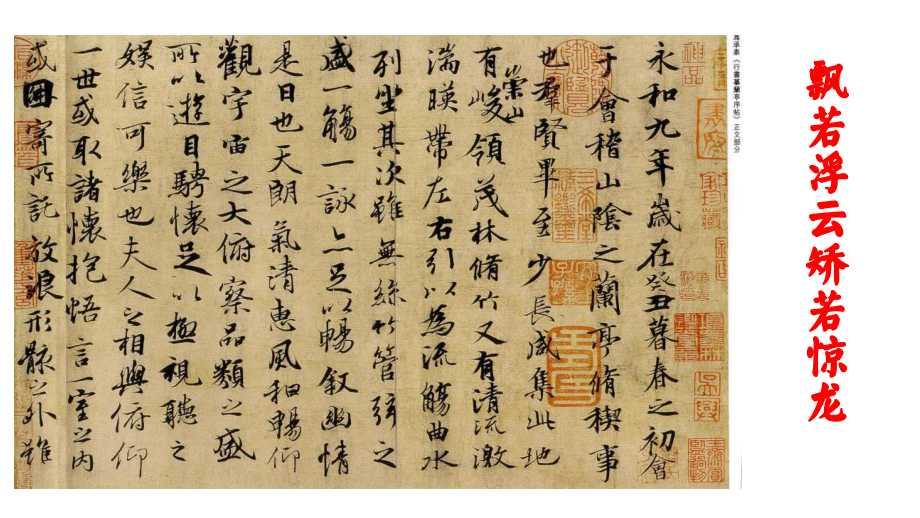 飘若浮云矫若惊龙
承素《行書摹蘭亭序帖》正文部分
神品
永和九年歲在癸丑暮春之初會
于會稽山陰之蘭亭脩稧事
也羣賢畢至少長咸集此地
有崇山峻領茂林脩竹又有清流激
湍暎帶左右引以為流觴曲水
列坐其次雖無絲竹管弦之
盛一觴一詠亦足以暢敘幽情
是日也天朗氣清惠風和暢仰
觀宇宙之大俯察品類之盛
所以遊目騁懷足以極視聽之
娛信可樂也夫人之相與俯仰
一世或取諸懷抱悟言一室之內
或因寄所託放浪形骸之外雖